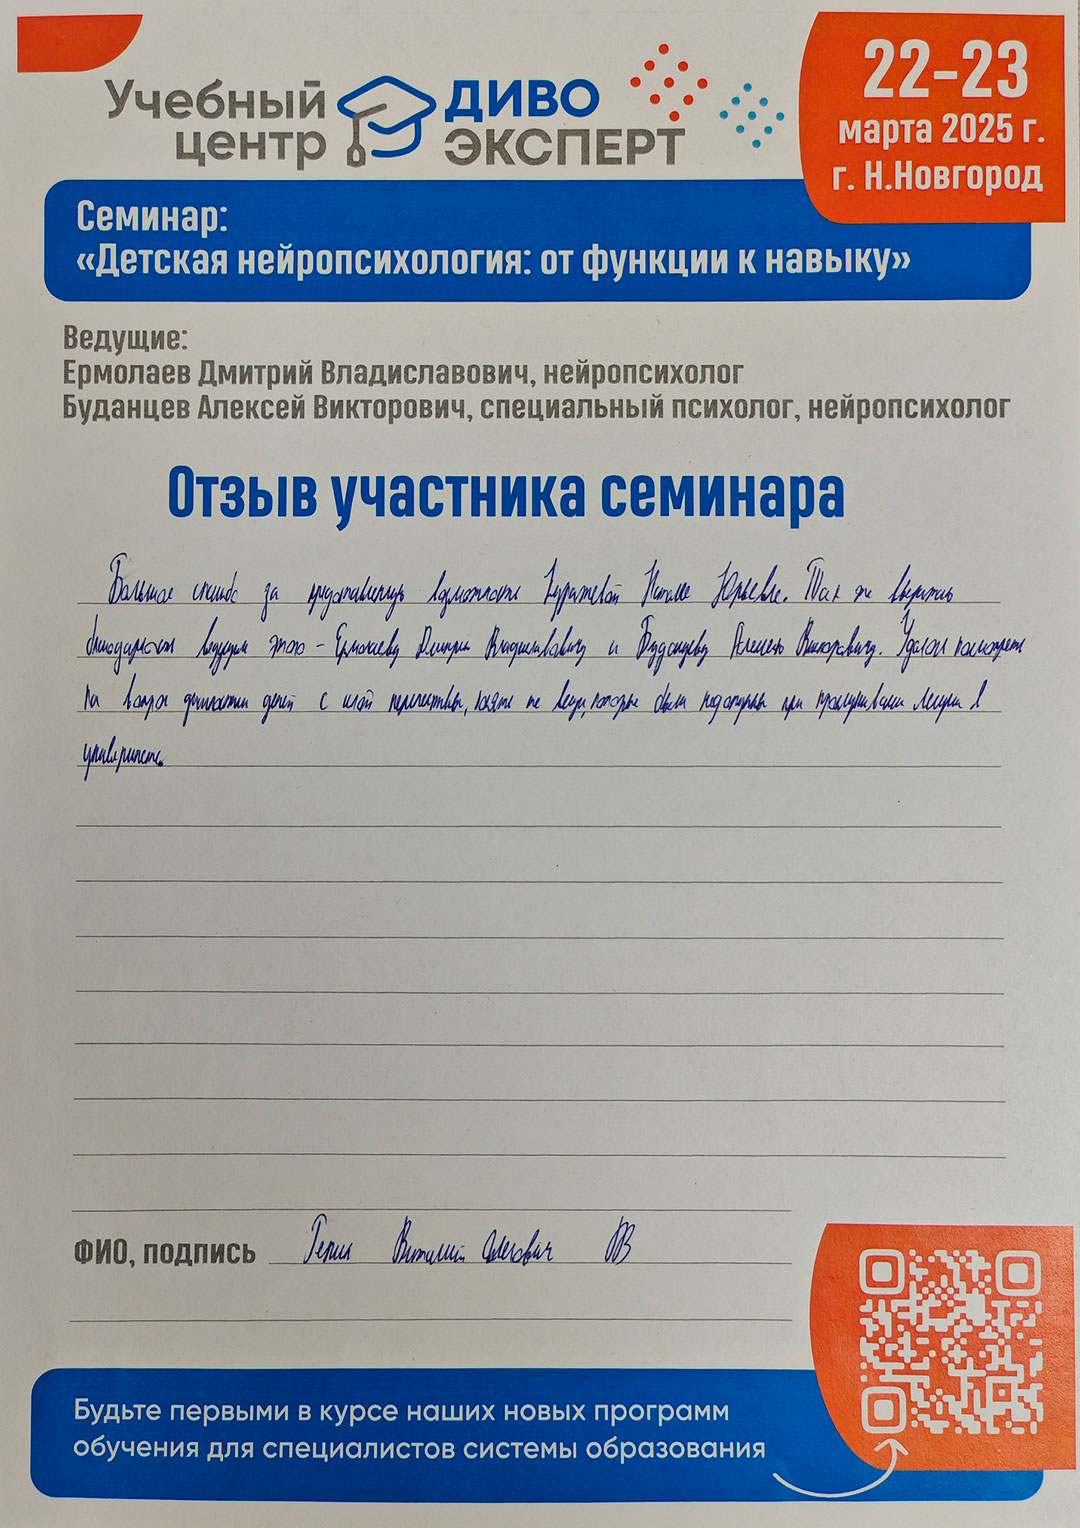 Учебный центр
ДИВО ЭКСПЕРТ
22-23
марта 2025 г.
г. Н.Новгород
Семинар:
«Детская нейропсихология: от функции к навыку»
Ведущие:
Ермолаев Дмитрий Владиславович, нейропсихолог
Буданцев Алексей Викторович, специальный психолог, нейропсихолог
Отзыв участника семинара
Большое спасибо за предоставленную возможность Наталье Юрьевне. Так же выразить
благодарность ведущим этого - Ермолаеву Дмитрию Владиславовичу и Буданцеву Алексею Викторовичу. Удалось посмотреть
на вопрос диагностики детей с иной перспективы, понять те вещи, которые были непонятны при прослушивании лекции в
университете.
ФИО, подпись Виталий Олегович
Будьте первыми в курсе наших новых программ
обучения для специалистов системы образования